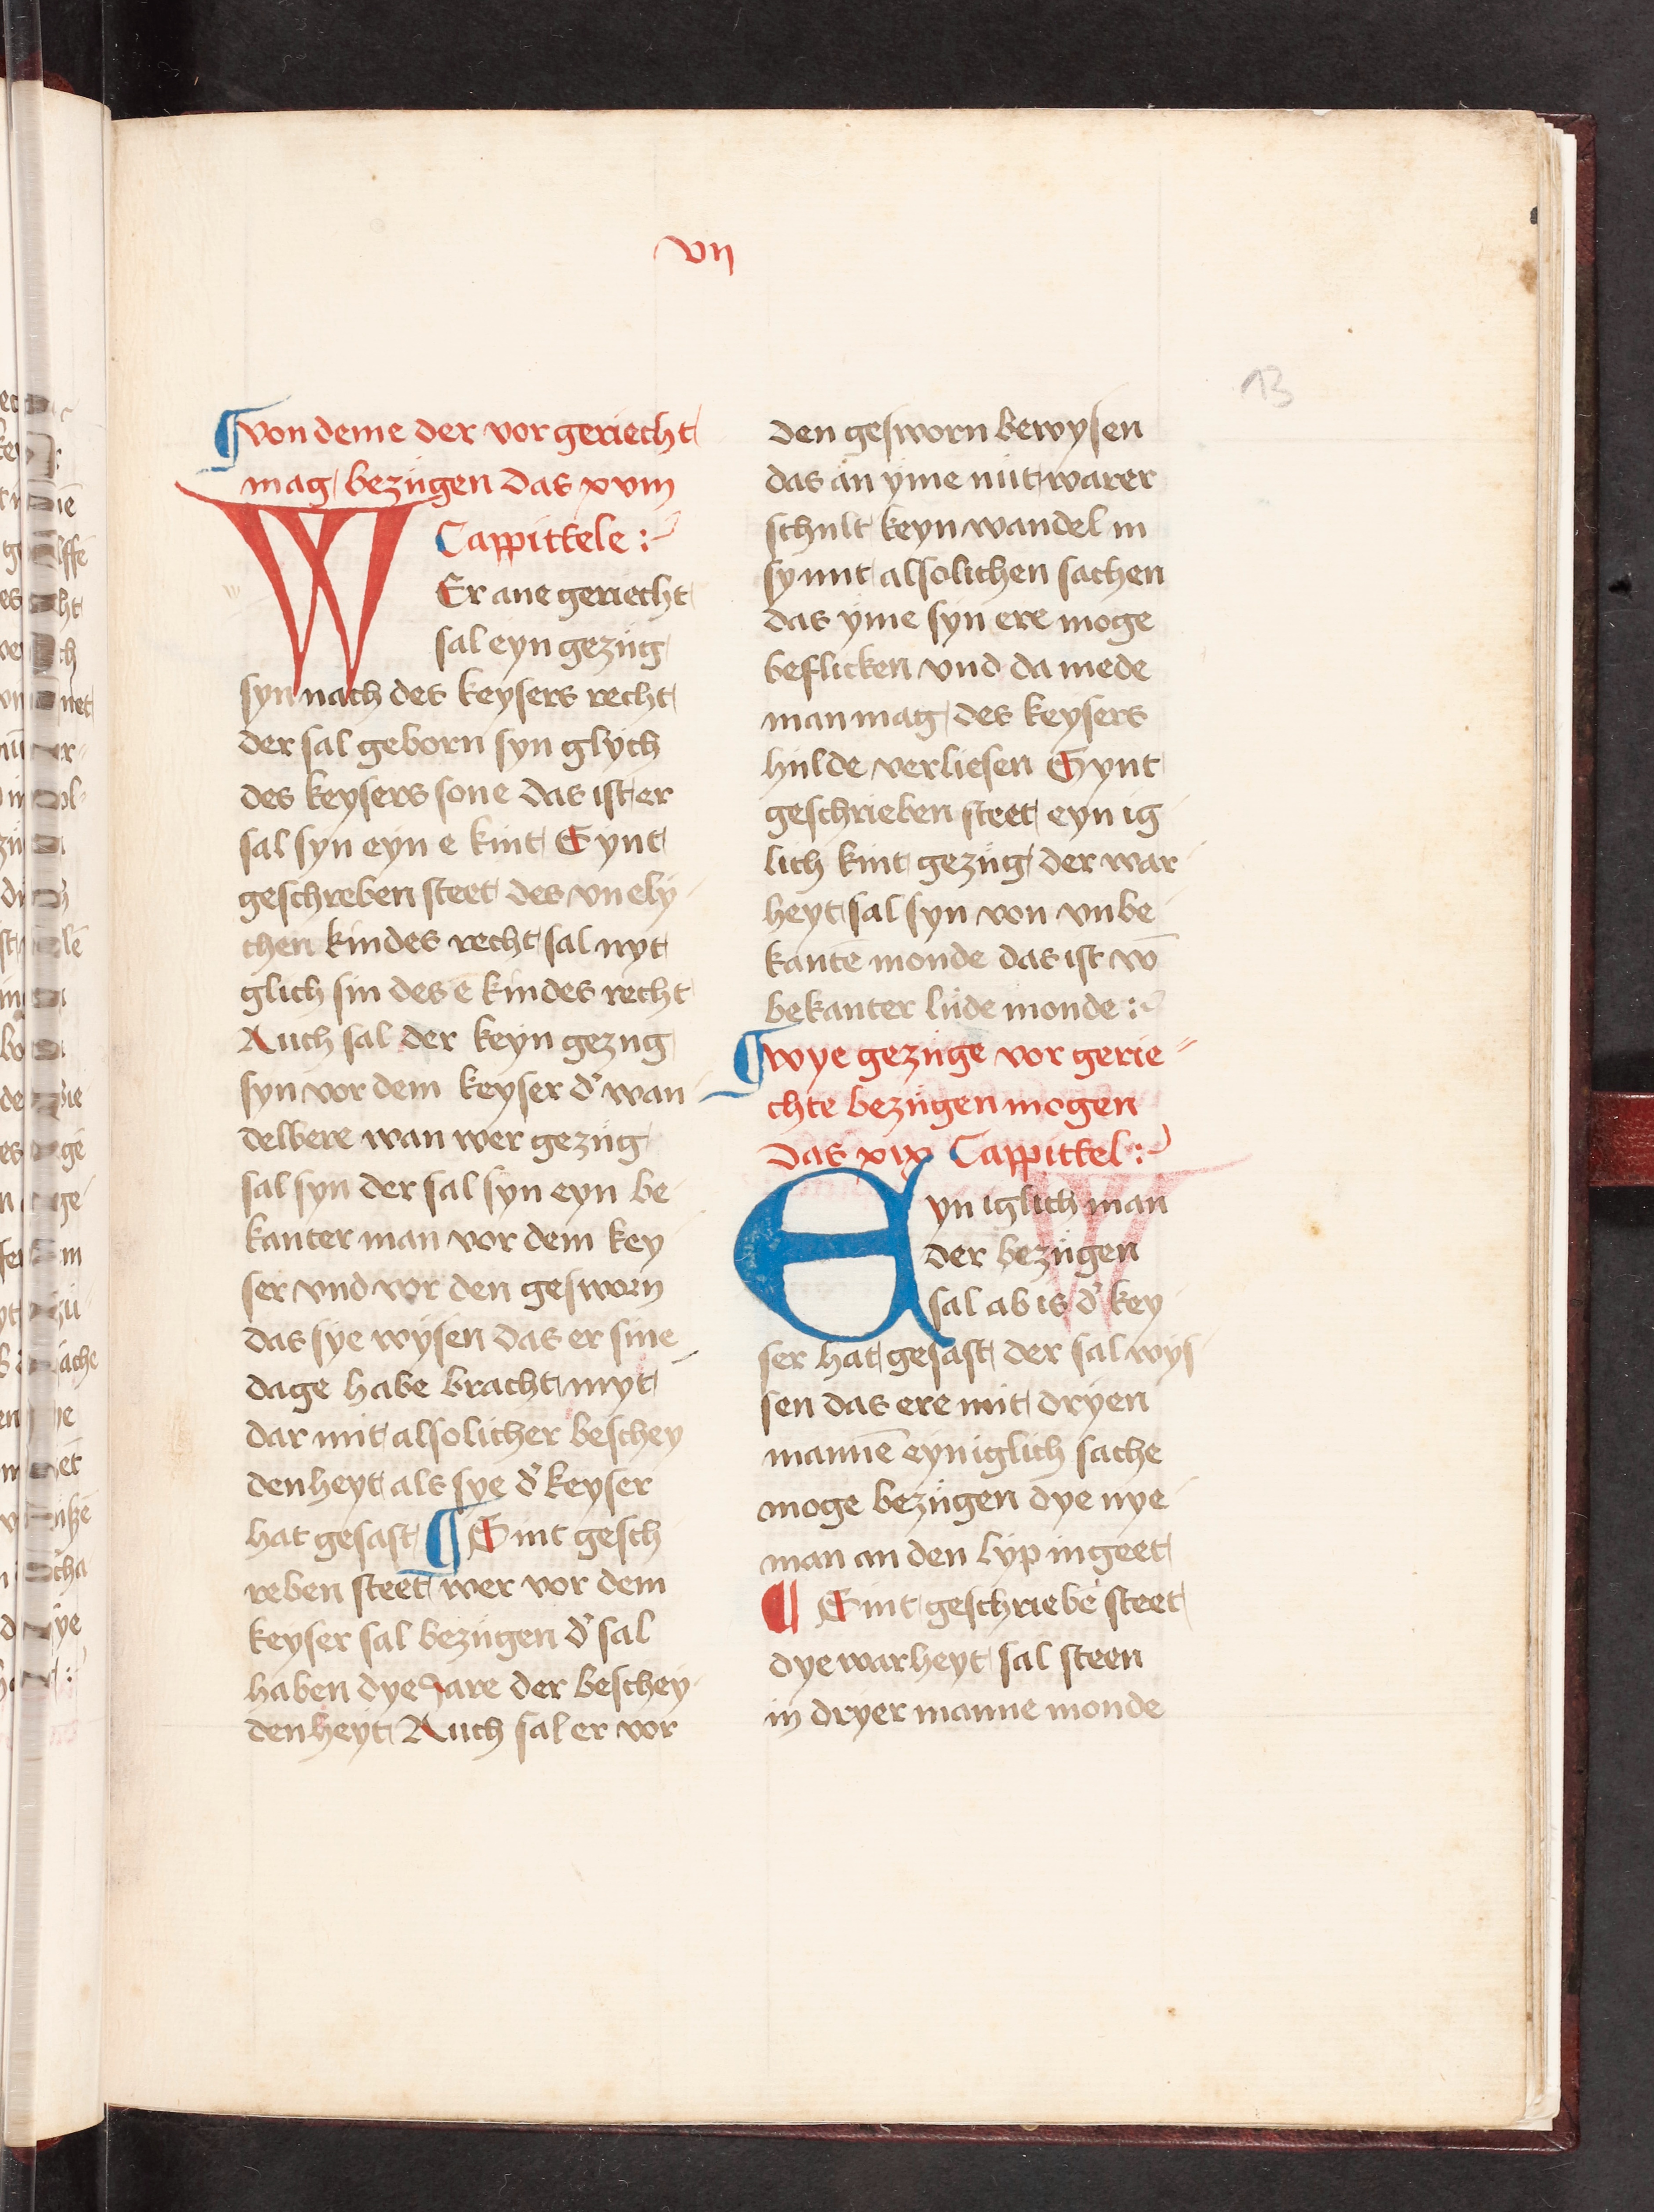 vij
13
¶ von deme der vor geriecht
mag bezúgen das xviij
Cappittele :
WEr ane geriecht
sal eyn gezúg
syn nach des keysers recht
der sal geborn syn glych
des keysers sone das ist er
sal syn eyn e kint Synt
geschreben steet des vnely
chen kindes recht sal nyt
glich sin des e kindes recht
Auch sal der keyn gezug
syn vor dem keyser d' wan
delbere wan wer gezúg
sal syn der sal syn eyn be
kanter man vor dem key
ser vnd vor den gesworn
das sye wysen das er sine
dage habe bracht myt
dar mit alsolicher beschey
denheyt als sye d' keyser
hat gesast ¶ Sint gesch
reben steet wer vor dem
keyser sal bezúgen d' sal
haben dye Jare der beschey
denheyt Auch sal er vor
den gesworn bewysen
das an yme nút warer
schult keyn wandel in
synnt alsolichen sachen
das yme syn ere moge
beflicken vnd da mede
man mag des keysers
hulde verliesen Synt
geschrieben steet eyn ig
lich kint gezúg der war
heyt sal syn von vnbe
kantē monde das ist vō
bekanter lúde monde :
¶ wye gezúge vor gerie
chte bezúgen mogen
das xix Cappittel :
Eyn iglich man
der bezúgen
sal ab is d' key
ser hat gesast der sal wys
sen das ere mit dryen
mannē eyn iglich sache
moge bezúgen dye nye
man an den lyp in geet
¶ Sint geschriebē steet
dye warheyt sal steen
in dryer manne monde